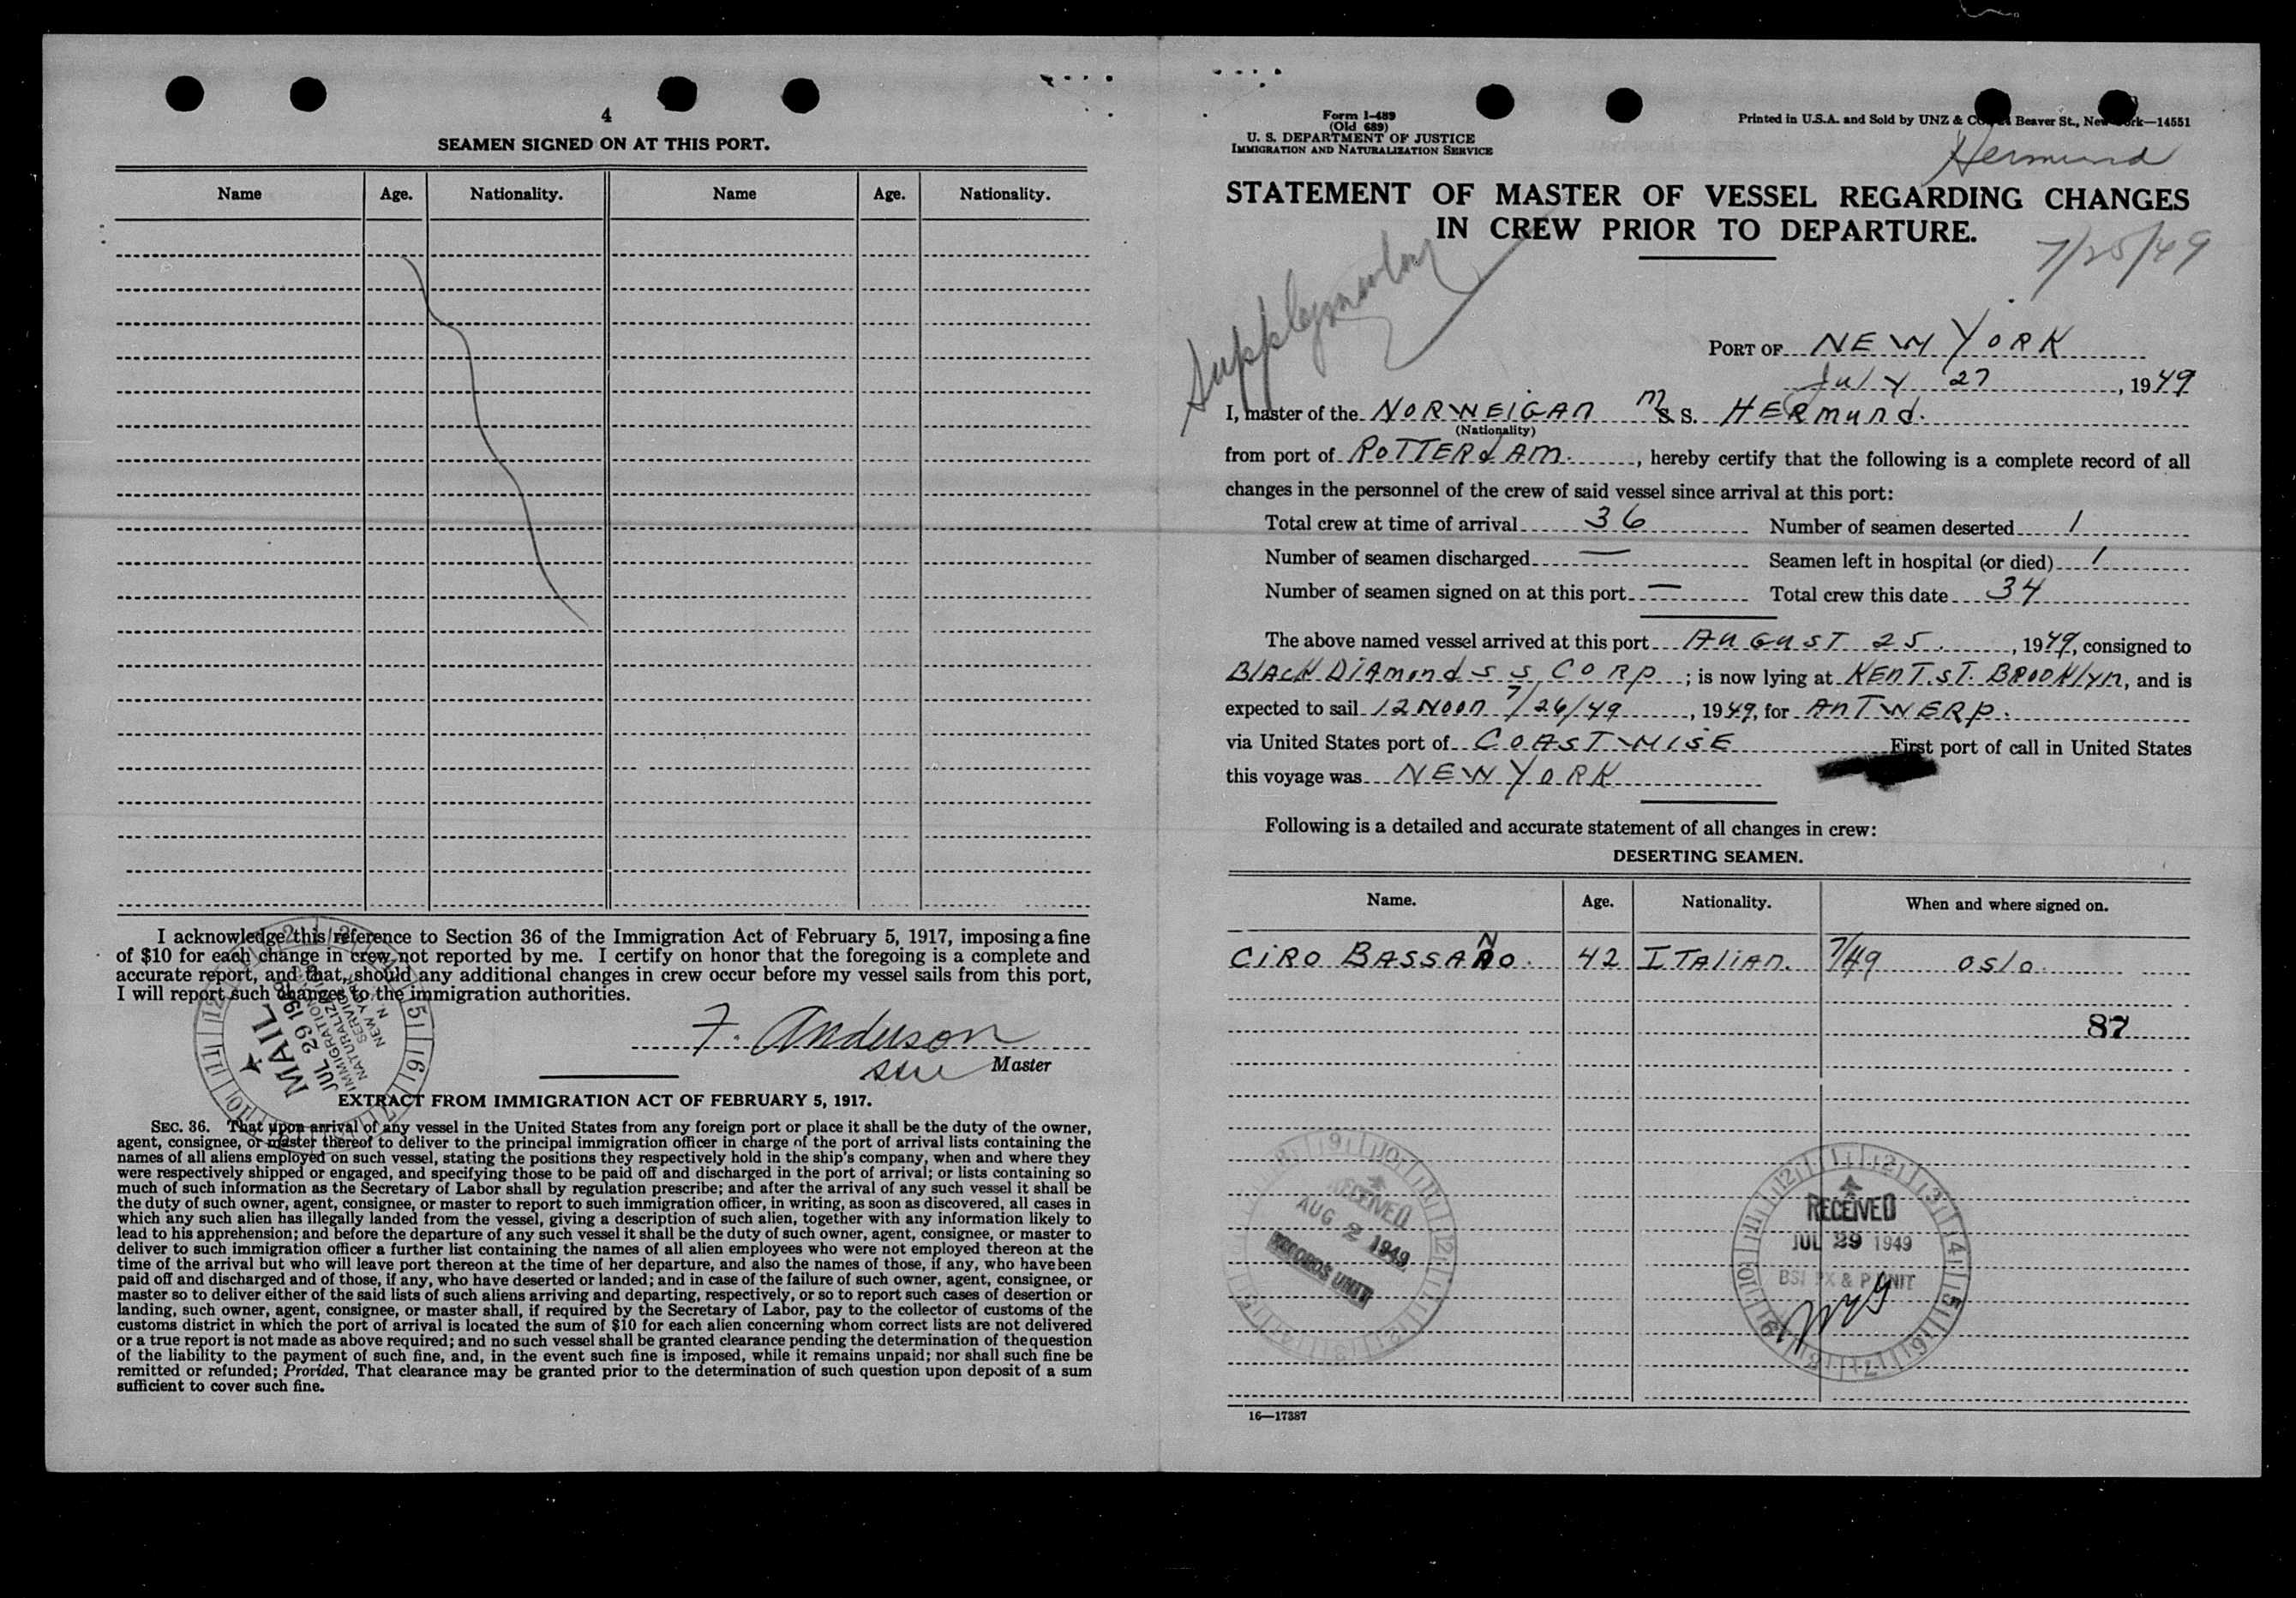 4
SEAMEN SIGNED ON AT THIS PORT.
Name Age. Nationality. Name Age. Nationality.
I acknowledge this reference to Section 36 of the Immigration Act of February 5, 1917, imposing a fine
of $10 for each change in crew not reported by me. I certify on honor that the foregoing is a complete and
accurate report, and that, should any additional changes in crew occur before my vessel sails from this port,
I will report such changes to the immigration authorities.
F. Anderson
Master
MAIL
JUL 29 19
IMMIGRATION
NATURALIZ
SERVIC
NEW Y
N.
EXTRACT FROM IMMIGRATION ACT OF FEBRUARY 5, 1917.
SEC. 36. That upon arrival of any vessel in the United States from any foreign port or place it shall be the duty of the owner,
agent, consignee, or master thereof to deliver to the principal immigration officer in charge of the port of arrival lists containing the
names of all aliens employed on such vessel, stating the positions they respectively hold in the ship's company, when and where they
were respectively shipped or engaged, and specifying those to be paid off and discharged in the port of arrival; or lists containing so
much of such information as the Secretary of Labor shall by regulation prescribe; and after the arrival of any such vessel it shall be
the duty of such owner, agent, consignee, or master to report to such immigration officer, in writing, as soon as discovered, all cases in
which any such alien has illegally landed from the vessel, giving a description of such alien, together with any information likely to
lead to his apprehension; and before the departure of any such vessel it shall be the duty of such owner, agent, consignee, or master to
deliver to such immigration officer a further list containing the names of all alien employees who were not employed thereon at the
time of the arrival but who will leave port thereon at the time of her departure, and also the names of those, if any, who have been
paid off and discharged and of those, if any, who have deserted or landed; and in case of the failure of such owner, agent, consignee, or
master so to deliver either of the said lists of such aliens arriving and departing, respectively, or so to report such cases of desertion or
landing, such owner, agent, consignee, or master shall, if required by the Secretary of Labor, pay to the collector of customs of the
customs district in which the port of arrival is located the sum of $10 for each alien concerning whom correct lists are not delivered
or a true report is not made as above required; and no such vessel shall be granted clearance pending the determination of the question
of the liability to the payment of such fine, and, in the event such fine is imposed, while it remains unpaid; nor shall such fine be
remitted or refunded; Provided, That clearance may be granted prior to the determination of such question upon deposit of a sum
sufficient to cover such fine.
Form I-489
(Old 689)
U. S. DEPARTMENT OF JUSTICE
IMMIGRATION AND NATURALIZATION SERVICE
Printed in U.S.A. and Sold by UNZ & CO. Beaver St., New York—14551
Hermund
STATEMENT OF MASTER OF VESSEL REGARDING CHANGES
IN CREW PRIOR TO DEPARTURE.
7/25/49
PORT OF NEW YORK
July 27, 1949
I, master of the NORWEIGAN M s. s. HERmund.
(Nationality)
from port of ROTTERdAM., hereby certify that the following is a complete record of all
changes in the personnel of the crew of said vessel since arrival at this port:
Total crew at time of arrival 36 Number of seamen deserted 1
Number of seamen discharged — Seamen left in hospital (or died) 1
Number of seamen signed on at this port — Total crew this date 34
The above named vessel arrived at this port AuGusT 25., 1949, consigned to
BlAcK DiAmond S S CORp; is now lying at KEnT. sT. BROOKlyn, and is
expected to sail 12 Noon 7/26/49, 1949, for AnTWERp.
via United States port of COAsTWISE First port of call in United States
this voyage was NEW YORK
Following is a detailed and accurate statement of all changes in crew:
DESERTING SEAMEN.
Name. Age. Nationality. When and where signed on.
CiRO BASSANO. 42 ITAliAn. 7/49 Oslo
87
RECEIVED
AUG 2 1949
RECORDS UNIT
RECEIVED
JUL 29 1949
16—17387